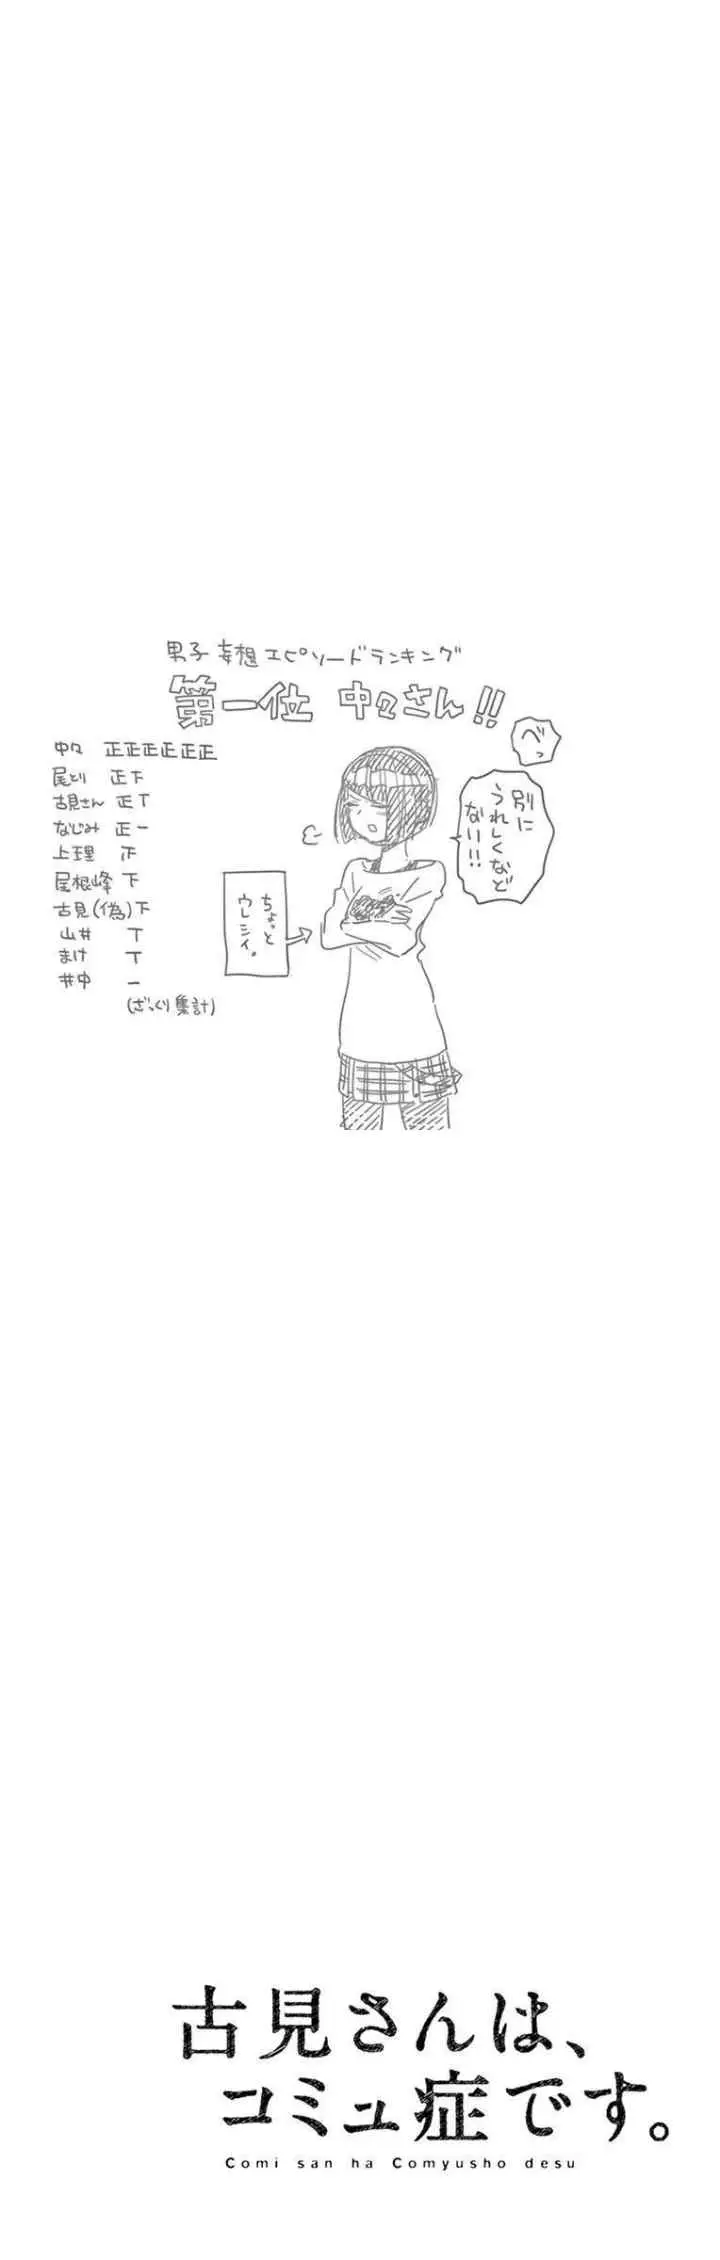 男子妄想エピソードランキング
第一位 中々さん!!
べっ
別に
うれしくなど
ない!!
中々 正正正正正正
尾とり 正下
古見さん 正丅
なじみ 正一
上理 正
尾根峰 下
古見(偽) 下
山井 丅
まけ 丅
井中 一
(ざっくり集計)
ちょっと
ウレシイ。
古見さんは、
コミュ症です。
Comi san ha Comyusho desu